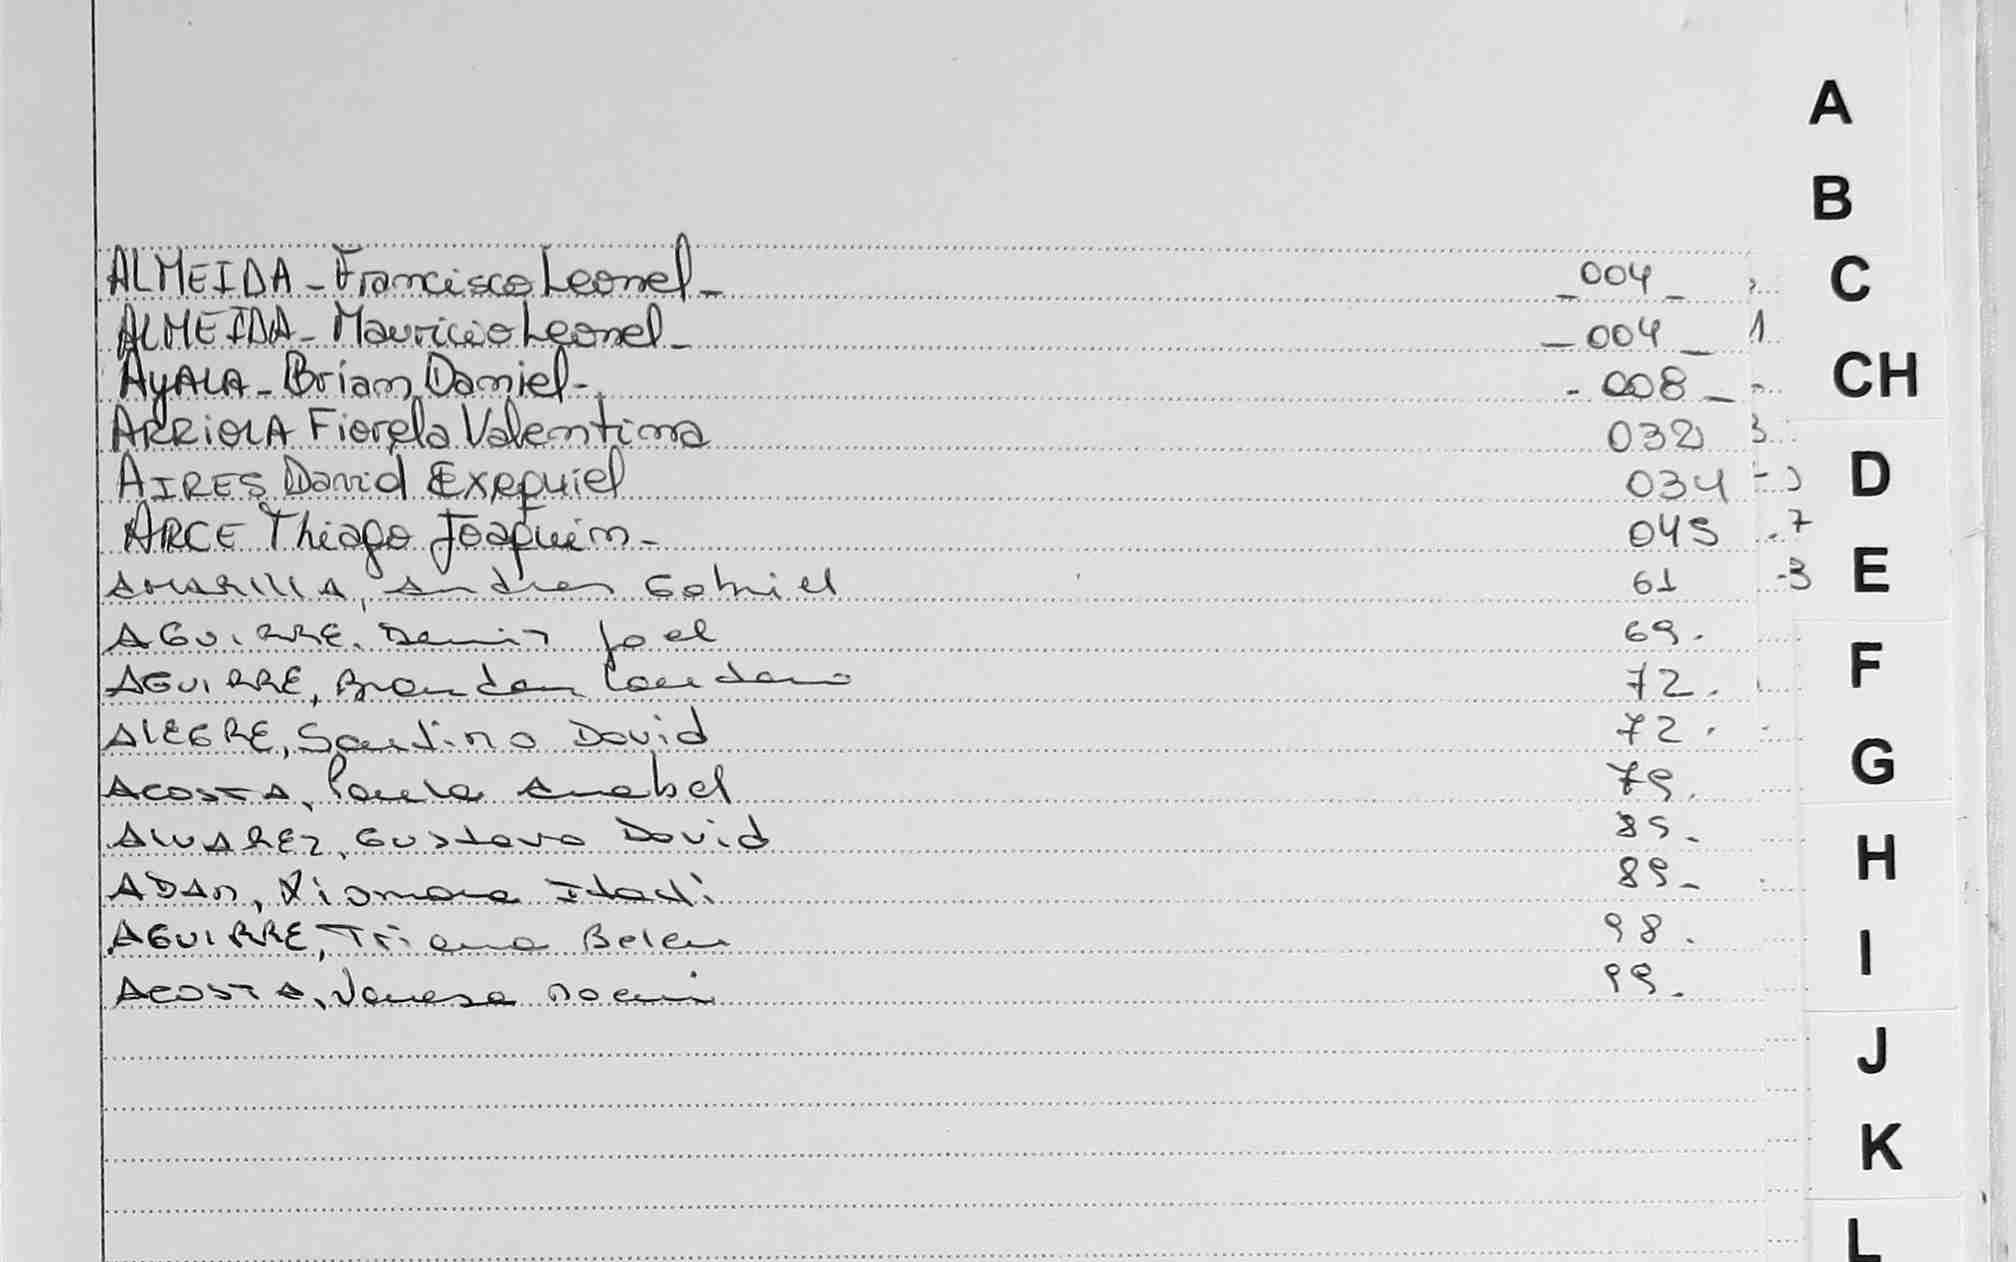 A
B
ALMEIDA - Francisco Leonel - _ 004 _
C
ALMEIDA - Mauricio Leonel - _ 004 _ 1
AYALA - Brian Daniel - - 008 _
CH
ARRIOLA Fiorela Valentina 032 3
AIRES David Exequiel 034
D
ARCE Thiago Joaquin - 045 7
AMARILLA, Andres Gabriel 61 -3
E
AGUIRRE, Joel 69.
AGUIRRE, Brandon 72.
F
ALEGRE, Santino David 72.
G
ACOSTA, Paula Anabel 79.
ALVAREZ, Gustavo David 85-
H
ADAN, Xiomara Itati 89-
AGUIRRE, Triana Belen 98.
I
ACOSTA, Vanesa Noemi 99.
J
K
L